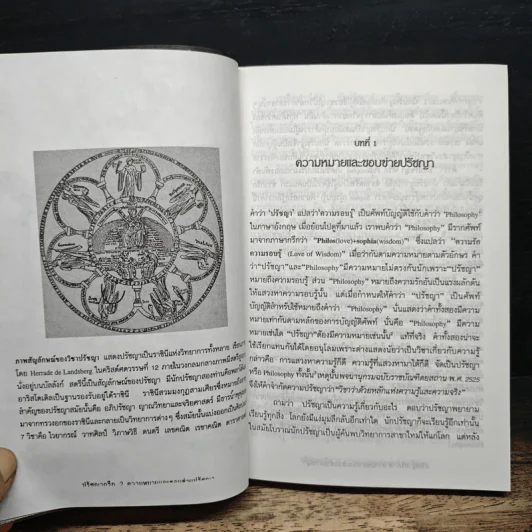 ภาพสัญลักษณ์ของวิชาปรัชญา แสดงปรัชญาเป็นราชินีแห่งวิทยาการทั้งหลาย
โดย Herrade de Landsberg ในคริสต์ศตวรรษที่ 12 ภายในวงกลมกลางภาพมีสตรีสูงศักดิ์
นั่งอยู่บนบัลลังก์ สตรีนี้เป็นสัญลักษณ์ของปรัชญา มีนักปรัชญาสองท่านคือ
อาริสโตเติลเป็นฐานรองรับอยู่ใต้ราชินี ราชินีสวมมงกุฎสามเศียร
ลำคัญของปรัชญาสมัยนั้นคือ อภิปรัชญา ญาณวิทยาและจริยศาสตร์
มาจากทรวงอกของราชินีและกลายเป็นวิทยาการต่างๆ ซึ่งสมัยนั้นแบ่งออกเป็น
7 วิชาคือ ไวยากรณ์ วาทศิลป์ วิภาษวิธี ดนตรี เลขคณิต เรขาคณิต
ปรัชญากรีก
บทที่ 1
ความหมายและขอบข่ายปรัชญา
คำว่า 'ปรัชญา' แปลว่า'ความรอบรู้' เป็นศัพท์บัญญัติใช้กับคำว่า 'Philosophy'
ในภาษาอังกฤษ เมื่อย้อนไปดูที่มาแล้ว เราพบคำว่า 'Philosophy' มีรากศัพท์
มาจากภาษากรีกว่า "Philos(love)+sophia(wisdom)" ซึ่งแปลว่า "ความรัก
ความรอบรู้" (Love of Wisdom) เมื่อว่ากันตามความหมายตามตัวอักษร คำ
ว่า"ปรัชญา"และ"Philosophy"มีความหมายไม่ตรงกันนักเพราะ"ปรัชญา"
หมายถึงความรอบรู้ ส่วน "Philosophy" หมายถึงความรักอันเป็นแรงผลักดัน
ให้แสวงหาความรอบรู้นั้น แต่เมื่อกำหนดให้คำว่า "ปรัชญา" เป็นศัพท์
บัญญัติสำหรับใช้หมายถึงคำว่า "Philosophy" นั่นแสดงว่าคำทั้งสองมีความ
หมายเท่ากันตามหลักของการบัญญัติศัพท์ นั่นคือ "Philosophy" มีความ
หมายเช่นใด "ปรัชญา"ต้องมีความหมายเช่นนั้น" แท้ที่จริง คำทั้งสองน่าจะ
ใช้เรียกแทนกันได้โดยอนุโลมเพราะต่างแสดงนัยว่าเป็นวิชาเกี่ยวกับความรู้
กล่าวคือ การแสวงหาความรู้ก็ดี ความรู้ที่แสวงหามาได้ก็ดี จัดเป็นปรัชญา
หรือ Philosophy ทั้งนั้น"เหตุนั้นพจนานุกรมฉบับราชบัณฑิตยสถาน พ.ศ. 2525
ให้คำจำกัดความปรัชญาว่า"วิชาว่าด้วยหลักแห่งความรู้และความจริง"
ถามว่า ปรัชญาเป็นความรู้เกี่ยวกับอะไร ตอบว่าปรัชญาพยายาม
เรียนรู้ทุกสิ่ง โลกยังมีแง่มุมลึกลับอีกเท่าใด นักปรัชญาก็จะเรียนรู้อีกเท่านั้น
ในสมัยโบราณนักปรัชญาเป็นผู้ค้นพบวิทยาการสาขาใหม่ให้แก่โลก แต่หลัง